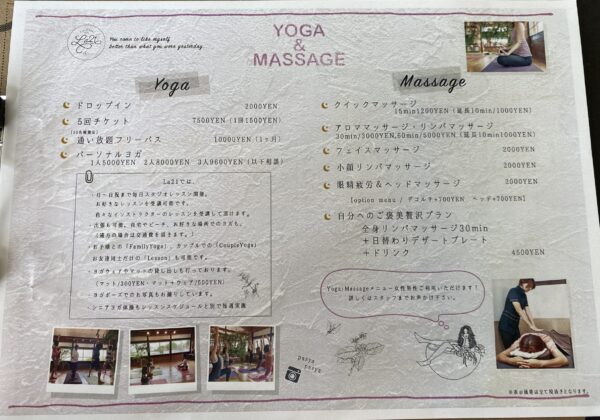 La21
You come to like myself
better than what you were yesterday.
YOGA
&
MASSAGE
Yoga
ドロップイン 2000YEN
5回チケット 7500YEN (1回1500YEN)
通い放題フリーパス 10000YEN (1ヶ月)
パーソナルヨガ
1人5000YEN 2人8000YEN 3人9600YEN (以下相談)
La21では、
月～日祝まで毎日スタジオレッスン開催。
お好きなレッスンを受講可能です。
色々なインストラクターのレッスンを受講して頂けます。
出張も可能。自宅やビーチ、お好きな場所でのヨガも。
お子様との「FamilyYoga」、カップルでの「CoupleYoga」
お友達同士だけの「Lesson」も可能です。
ヨガウェアやマットの貸し出しも行っております。
(マット/300YEN・マット+ウェア/500YEN)
ヨガポーズでのお写真もお撮りしています。
シニアヨガ体操もレッスンスケジュールと別で毎週実施
Massage
クイックマッサージ
15min1200YEN (延長10min/1000YEN)
アロママッサージ・リンパマッサージ
30min/3000YEN,60min/5000YEN (延長10min/1000YEN)
フェイスマッサージ 2000YEN
小顔リンパマッサージ 2000YEN
眼精疲労&ヘッドマッサージ 2000YEN
[option menu / デコルテ+700YEN ヘッド+700YEN]
自分へのご褒美贅沢プラン
全身リンパマッサージ30min
+日替わりデザートプレート
+ドリンク 4500YEN
Yoga/Massageメニュー女性男性ご利用いただけます!
詳しくはスタッフまでお声掛け下さい。
pasya
pasya
※表示価格は全て税抜きとなります。